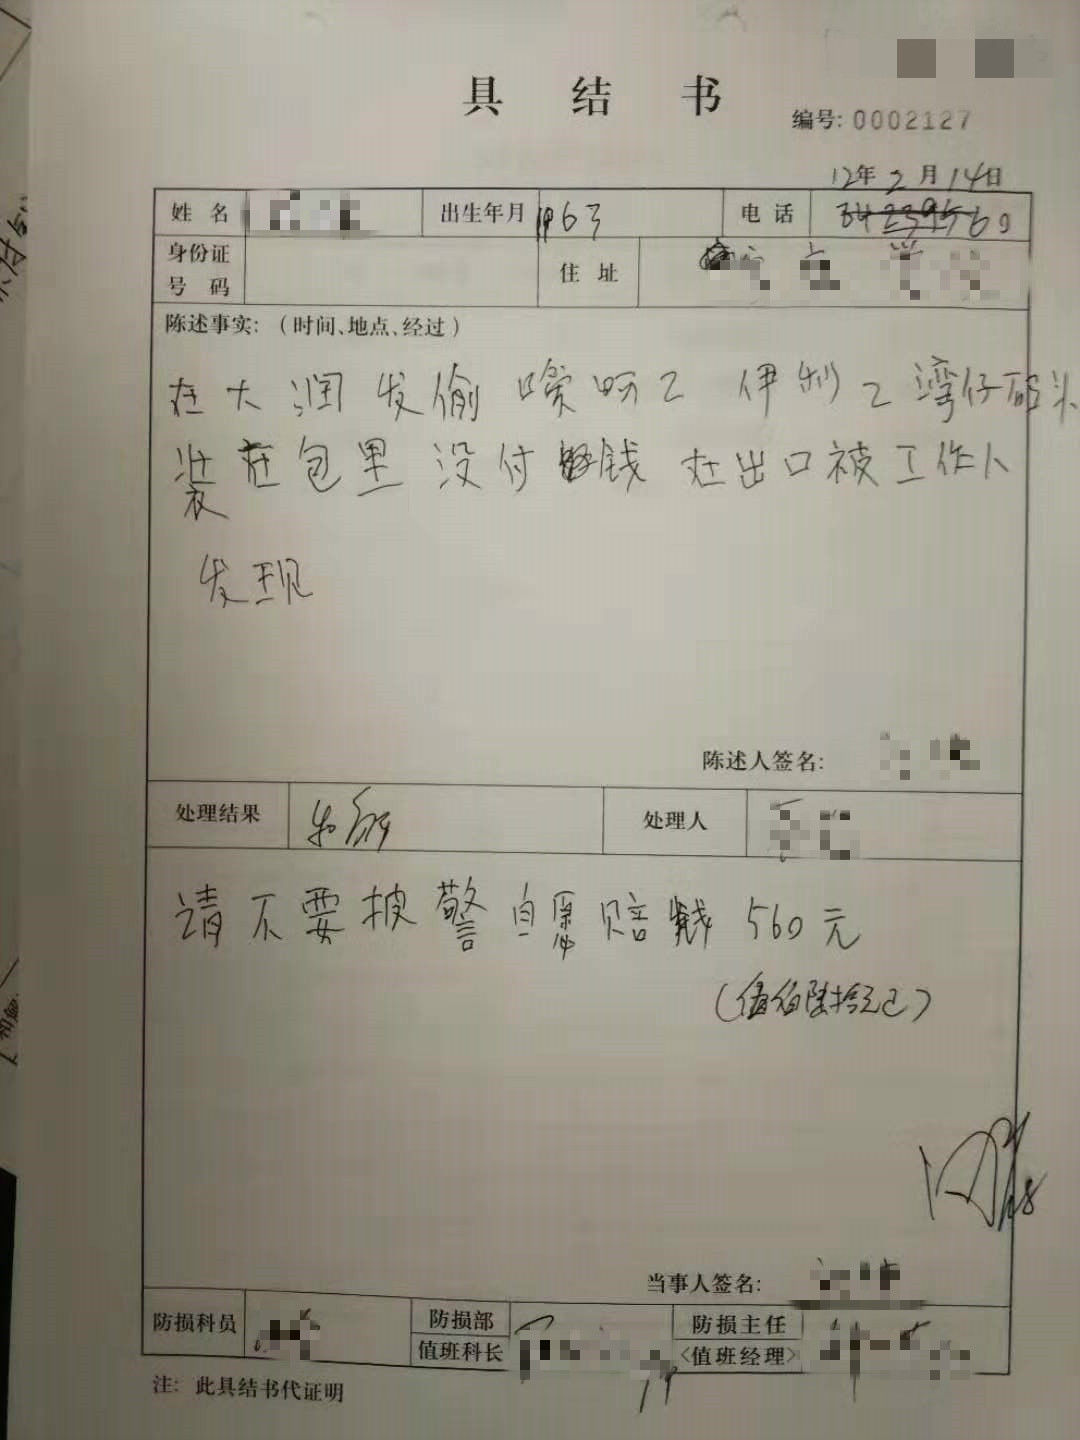 具 结 书
编号: 0002127
12年 2 月 14日
姓 名
出生年月 1963
电 话
身份证
号 码
住 址
陈述事实: (时间、地点、经过)
在大润发偷 2 伊利 2 湾仔码头
装在包里 没付钱 在出口被工作人
发现
陈述人签名:
处理结果
处理人
请不要披警自愿赔钱 560元
当事人签名:
防损科员
防损部
值班科长
防损主任
<值班经理>
注: 此具结书代证明